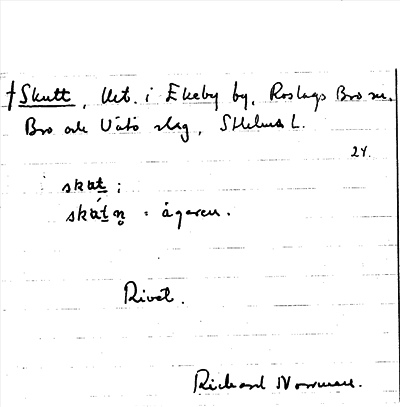 †Skutt, lht. i Ekeby by, Roslags Bro sn.
Bro och Vätö slag, Sthlms l.
24.
skut̲ :
skút̲n̥ = ägaren.
Rivet.
Richard Norrman.